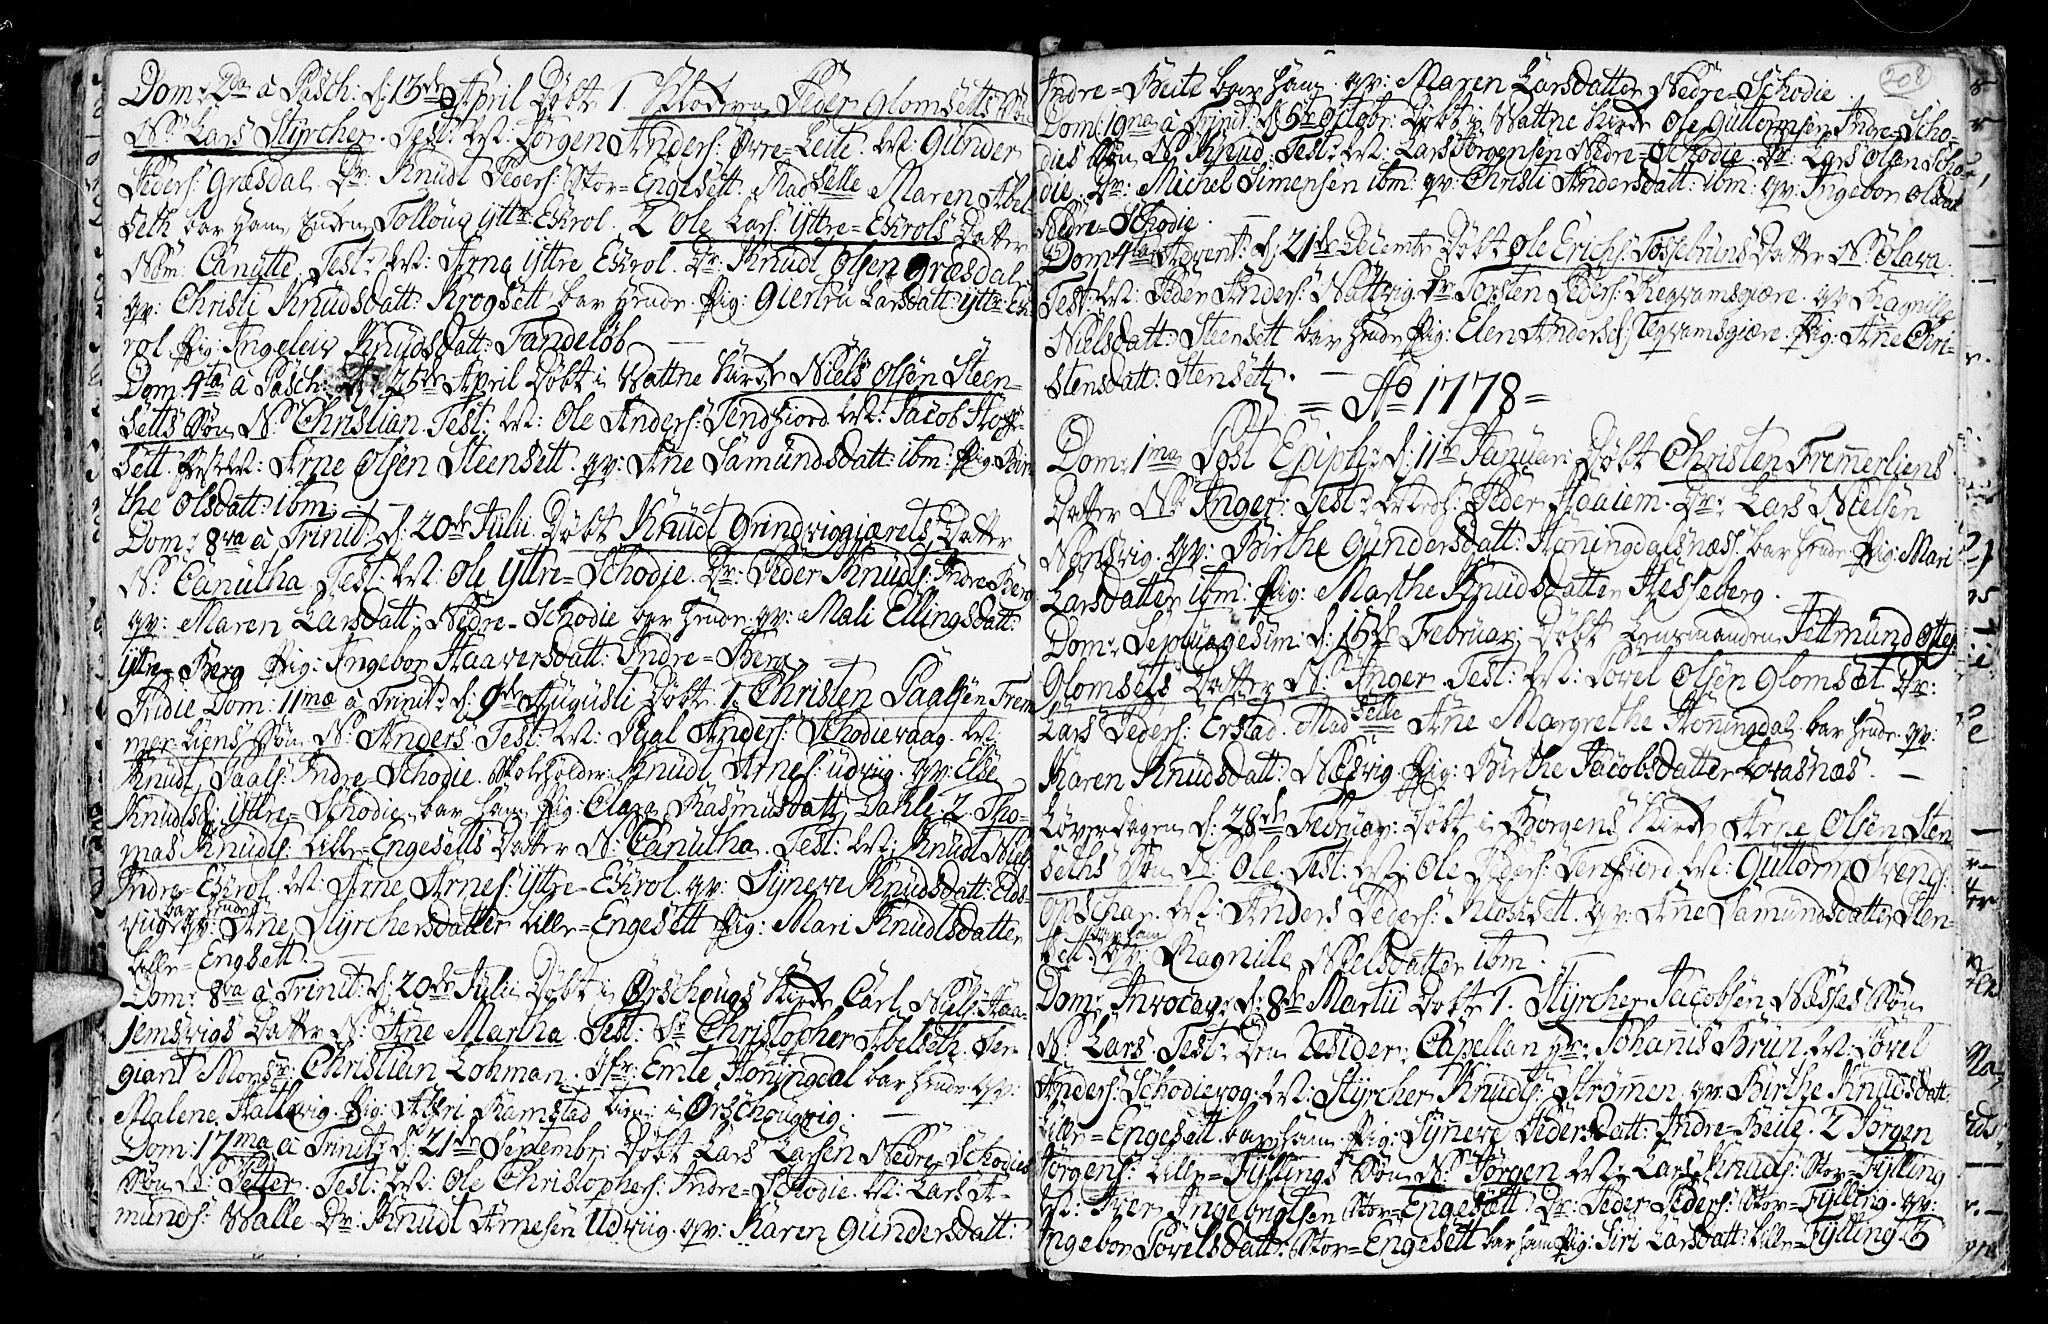 Dom: 2da à Pasch: d: 13de April Døbt 1. Peder Glomsetts Søn
N: Lars Styrcher. Test: M: Jørgen Anders: Øvre=Leite. M: Gunder
Peders: Græsdal. Dr: Knudt Peders: Stor=Engesett. Madselle Maren Abel-
seth bar ham inden Tollong yttre Eskrol. 2 Ole Lars: Yttre=Eskrols Datter
Nom: Canutte. Test: M: Arne Yttre Eskrol. Dr: Knudt Olsen Græsdal
qv: Christi Knudsdatt: Krogsett bar hende. Pig: Giertru Larsdatt: Yttre Esk-
rol. Pig: Ingeleiv Knudsdatt: Fandeløb
Dom: 4ta à Pasch: d: 26de April Døbt i Wattne Kirke Niels Olsen Steen-
setts Søn N: Christian. Test: M: Ole Anders: Tendfiord. M: Jacob
sett. M: Arne Olsen Steensett. qv: Ane Samundsdatt: ibm: Pig: Bir-
the Olsdatt: ibm:
Dom: 8va à Trinit: d: 20de Julii. Døbt Knudt Grindviggiærets Datter
N: Canutha. Test: M: Ole Yttre=Schodje. Dr: Peder Knuds: Indre Berg
qv: Maren Larsdatt: Nedre=Schodie bar hende. qv: Mali Ellingsdatt:
Yttre=Berg Pig: Ingebor Haaversdatt: Indre=Berg.
Tridie Dom: 11mæ à Trinit: d: 9de Augusti Døbt 1. Christen Paalsen Frem
mer-Liens Søn N: Anders. Test: M: Paal Anders: Schodievaag. M:
Knudt Paals: Indre Schodie. Skoleholder Knudt Arnes: Udviig. qv: Else
Knudtsd: Yttre=Schodie bar ham. Pig: Clara Rasmusdatt: Dahle. 2 Tho-
mas Knudts: Lille=Engesetts Datter N: Canutha. Test: M: Knudt Niels
Indre Eskrol. M: Arne Arnes: Yttre=Eskrol. qv: Syneve Knudsdatt: Eids-
viig bar hende qv: Ane Styrchersdatter Lille=Engesett Pig: Mari Knudtsdatter
Lille=Engsett.
Dom: 8va à Trinit: d: 20de Julii Døbt i Ørschougs Kirke Carl Niels: Haa-
jemsvigs Datter N: Ane Martha. Test: Sr Christopher Abelseth. Ser
giant Monsr: Christian Lohman. Jfr: Emte Honingdal bar hende. qv:
Malene Hattvig. Pig: Kamstad tien: i Ørschougvig.
Dom: 17ma à Trinit: d: 21de Septembr: Døbt Lars Larsen Nedre Schodies
Søn N: Petter. Test: M: Ole Christophers: Indre=Schodie. M: Lars A-
munds: Walle Dr: Knudt Arnesen Udviig. qv: Karen Gundersdatt:
208
Indre=Beite bar ham. qv: Maren Larsdatter Nedre=Schodie.
Dom: 19na à Trinit: d: 5te Octobr: Døbt i Wattne Kirke Ole Guttormsen Indre=Scho-
dies Søn N: Knud. Test: M: Lars Jørgensen Nedre=Schodie. Dr: Lars Olsen Scho-
die. Dr: Michel Simensen ibm: qv: Christi Andersdatt: ibm: qv: Ingebor Olsdatt
Nedre=Schodie.
Dom: 4ta Advent: d: 21de Decembr Døbt Ole Erichs: Fossebruns Datter N: Olava.
Test: M: Peder Anders: Nattvig. Dr: Torsten Peders: Regvamsgiære. qv Ragnille
Nielsdatt: Steensett bar hende Pig: Elen Andersd: Tegvamsgiære. Pig: Ane Chri-
stensdatt: Stensett.
= Ao 1778 =
Dom: 1ma Post Epiph: d: 11te Januari Døbt Christen Fremerliens
Datter N: Inger. Test: Peder Haaiem. Dr: Lars Nielsen
Nørsvig. qv: Birthe Gundersdatt: Honingdalsnæs: bar hende Pig: Mari
Larsdatter ibm: Pig: Marthe Knudsdatter Hesseberg.
Dom: Septuagesim: d: 15de Februar: Døbt Lensmanden Jettmund Ottes:
Glomsets Datter N: Inger. Test: M: Povel Olsen Glomset. Dr:
Lars Peders: Erstad. Madselle Ane Margrethe Honingdal bar hende. qv:
Karen Knudsdatt: Næsvig. Pig: Birthe Jacobsdatter Lovasnæs.
Løverdagen d: 28de Februar: Døbt i Borgens Kirke Arne Olsen Sten
seths Søn N: Ole. Test: M: Ole Peders: Tenfiord M: Guttorm Svends:
Opschar. M: Anders Peders: Klocksett. qv: Ane Samundsdatter Sten-
sett bar ham qv: Ragnille Nielsdatter ibm.
Dom: Invocav: d: 8de Martii Døbt 1. Styrcher Jacobsen Næsses Søn
N: Lars. Test: Den Resider: Capellan Hr: Johanis Brun. M: Povel
Anders: Schodievog. M: Styrcher Knuds: Strømen. qv: Birthe Knudsdatt:
Lille=Engesett bar ham. Pig: Syneve Pedersdatt: Indre=Beite. 2 Jørgen
Jørgens: Lille=Fyllings Søn N: Jørgen. M: Lars Knuds: Stor=Fylling
M: Iver Ingebrigtsen Stor=Engesett. Dr: Peder Peders: Stor=Fylling. qv:
Ingebor Povelsdatt: Stor=Engesett bar ham Pig: Siri Larsdatt: Lille=Fylling. 3